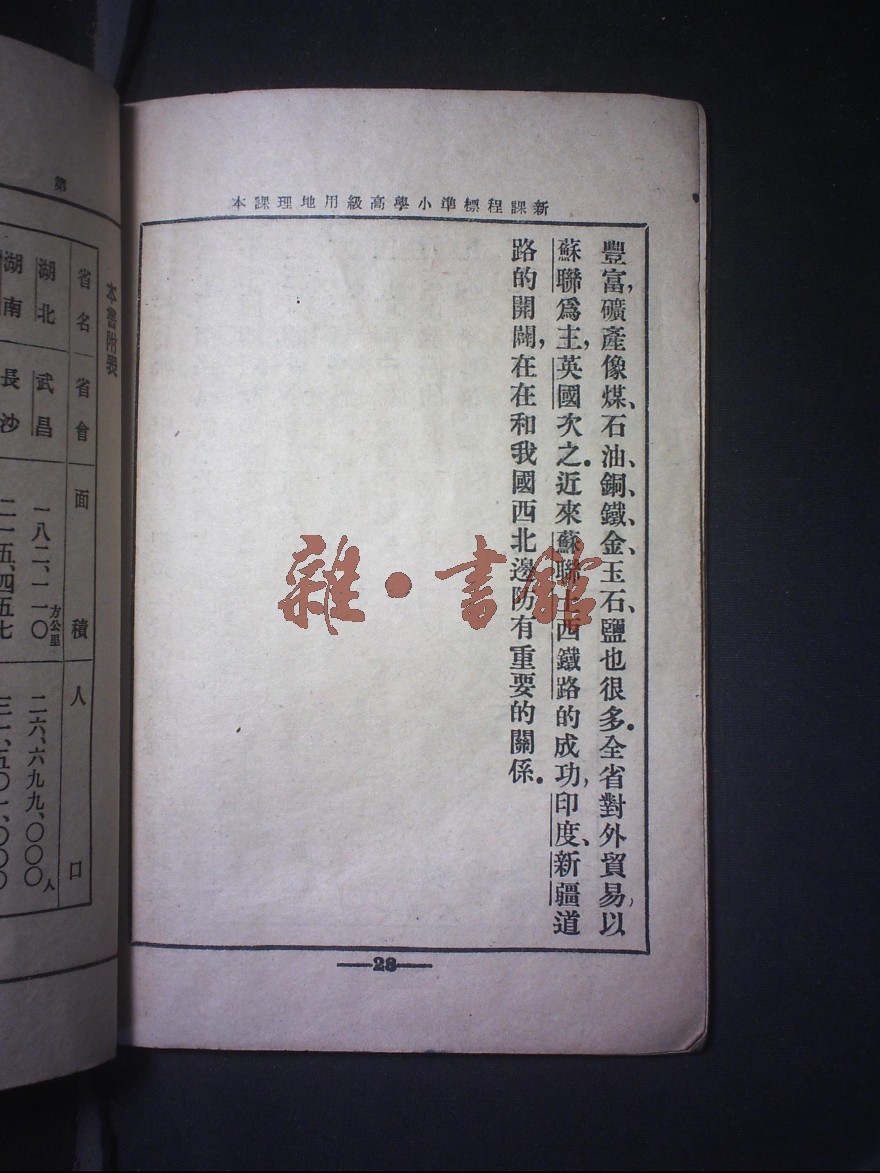 新課程標準小學高級用地理課本
豐富，礦產像煤、石油、銅、鐵、金、玉石、鹽也很多。全省對外貿易，以
蘇聯爲主，英國次之。近來蘇聯土西鐵路的成功，印度、新疆道
路的開闢，在在和我國西北邊防有重要的關係。
28
雜·書館
第
本書附表
省名 省會 面積 人口
湖北 武昌 一八二、一一〇方公里 二六、六九九、〇〇〇人
湖南 長沙 二一五、四五七